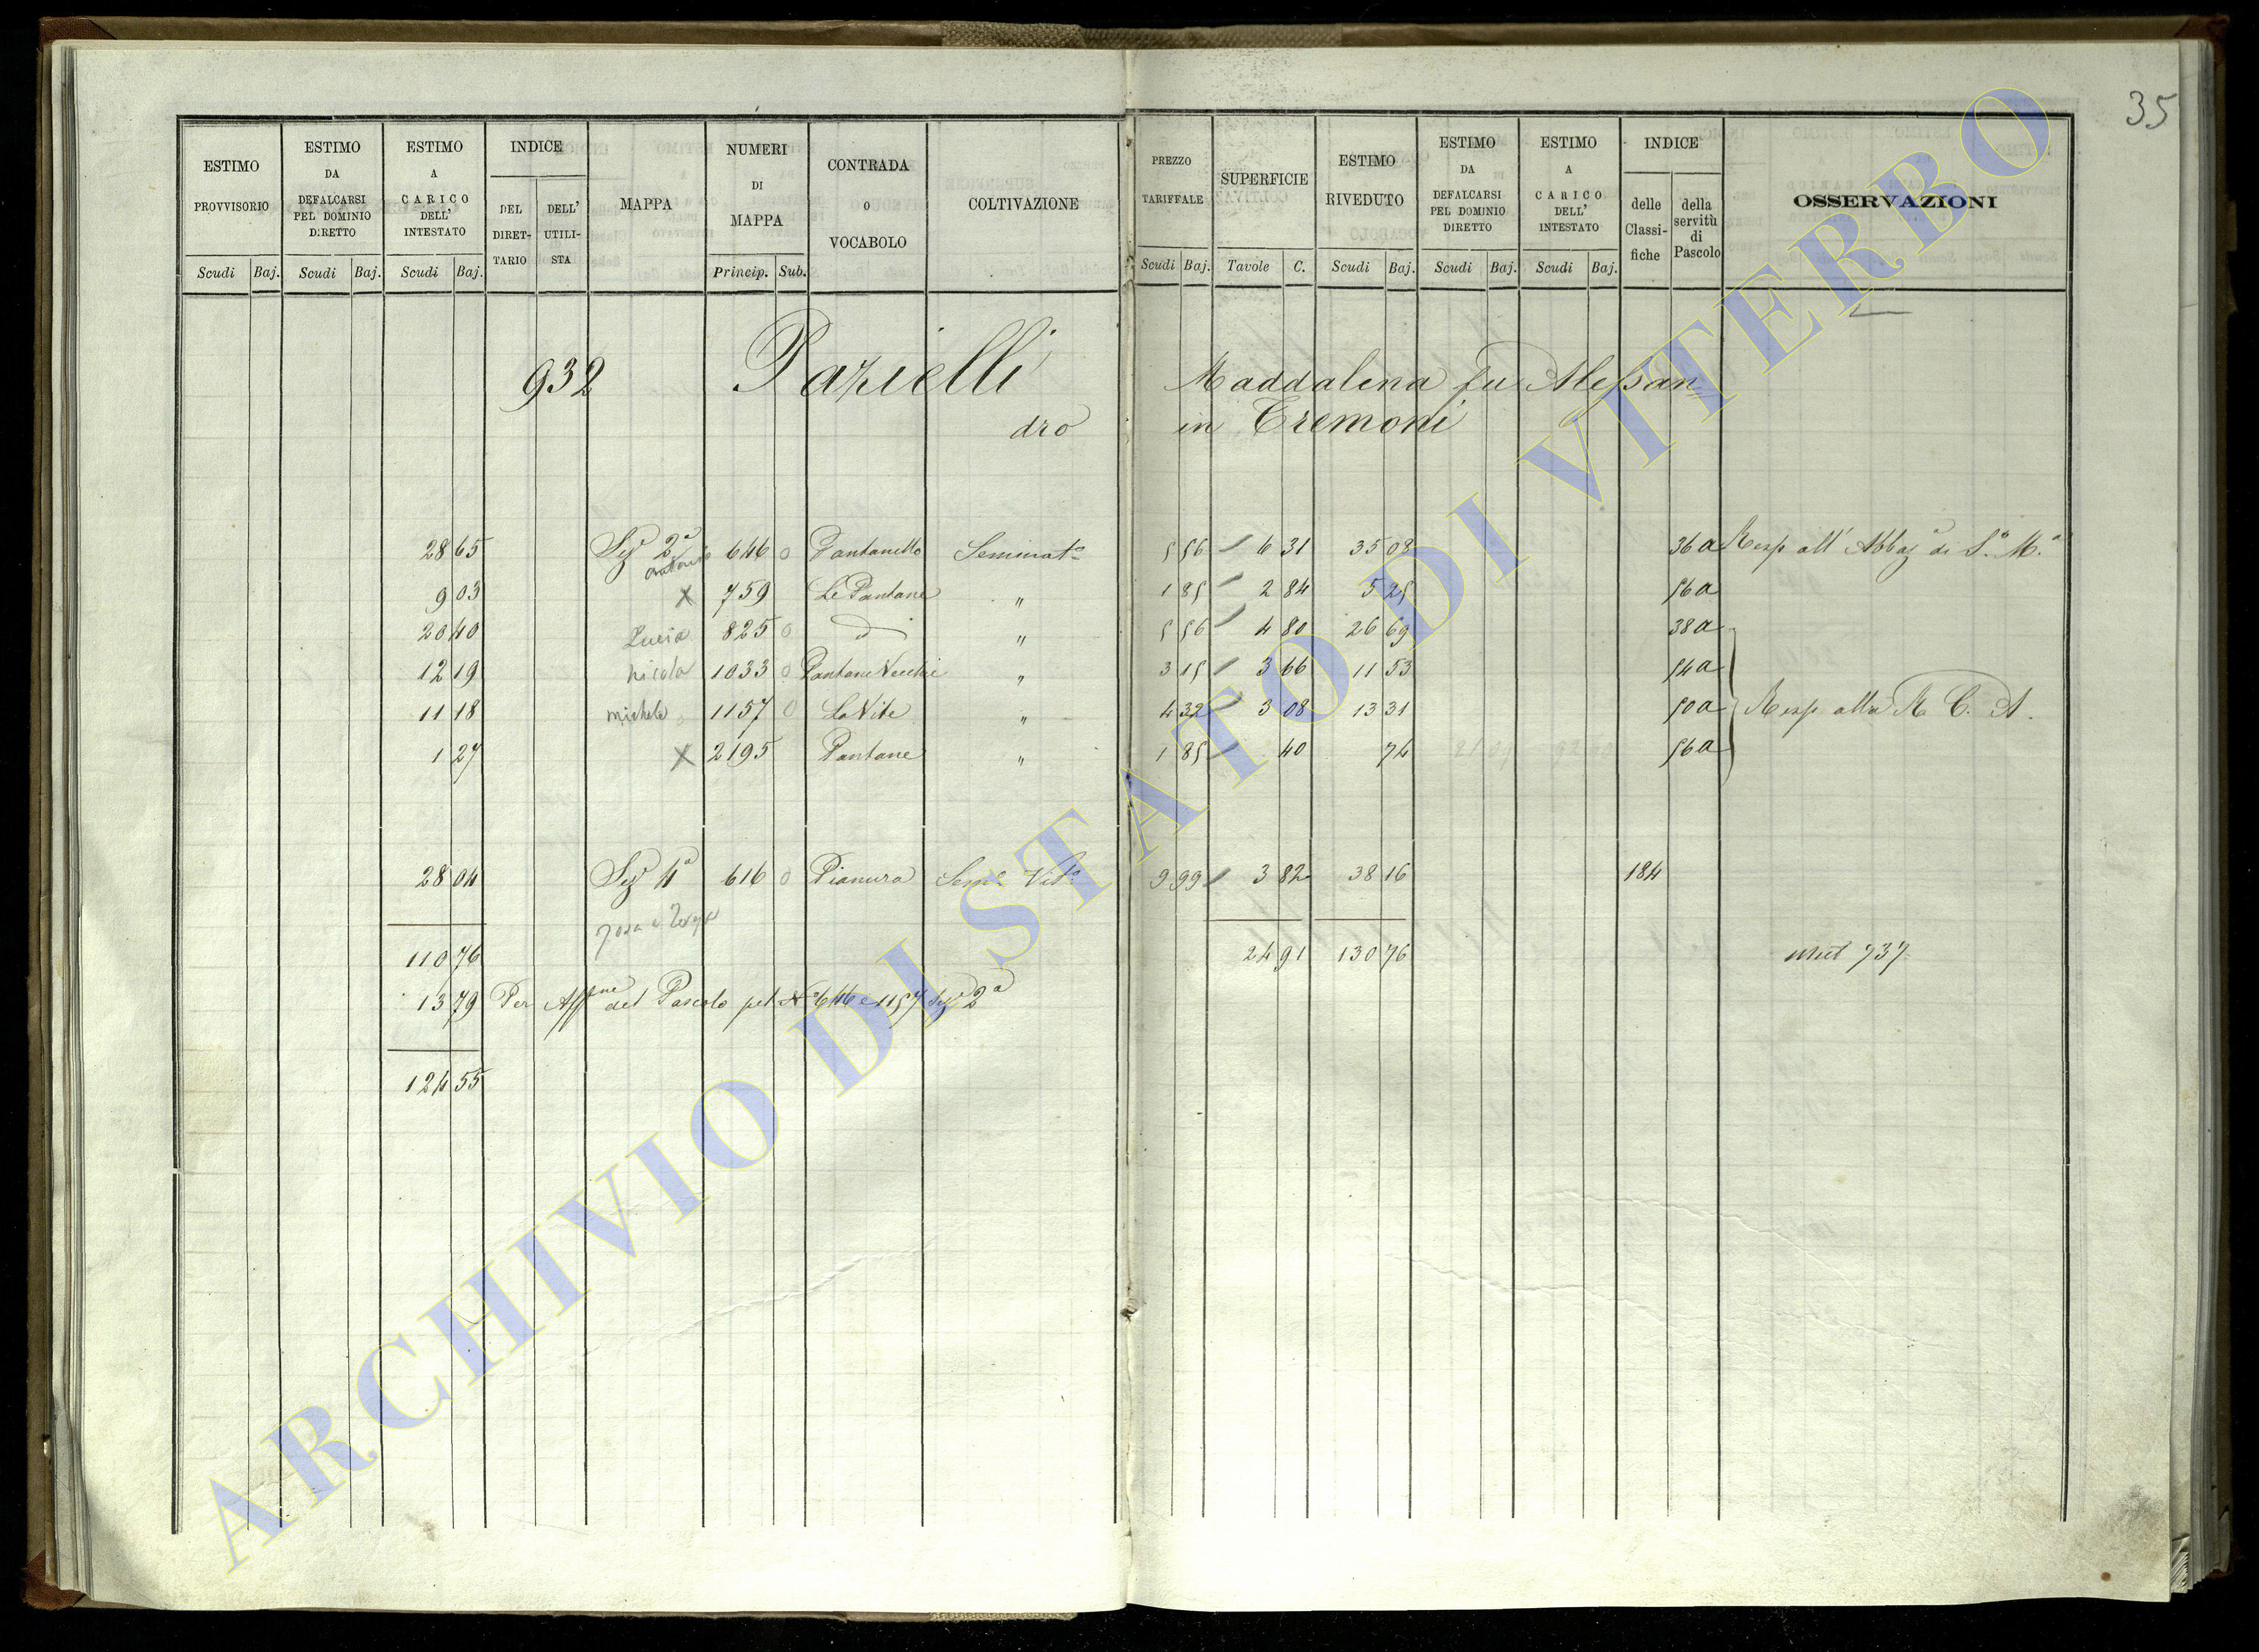 35
ESTIMO PROVVISORIO
ESTIMO DA DEFALCARSI PEL DOMINIO DIRETTO
ESTIMO A CARICO DELL' INTESTATO
INDICE
DEL DIRET-TARIO
DELL' UTILI-STA
MAPPA
NUMERI DI MAPPA
CONTRADA O VOCABOLO
COLTIVAZIONE
PREZZO TARIFFALE
SUPERFICIE
ESTIMO RIVEDUTO
ESTIMO DA DEFALCARSI PEL DOMINIO DIRETTO
ESTIMO A CARICO DELL' INTESTATO
INDICE
delle Classi-fiche
della servitù di Pascolo
OSSERVAZIONI
Scudi Baj. Scudi Baj. Scudi Baj. Princip. Sub. Scudi Baj. Tavole C. Scudi Baj. Scudi Baj. Scudi Baj.
932 Pazielli Maddalena fu Alessan=
dro in Cremoni
28 65 Sez 2a 646 0 Pantanello Seminato 5 56 6 31 35 08 36a Resp all' Abbaza di S.a M.a
9 03 X 759 Le Pantane " 1 85 2 84 5 25 56a
20 40 Lucia 825 0 d " 5 56 4 80 26 69 38a
12 19 Nicola 1033 0 Pantane Vecchie " 3 15 3 66 11 53 54a
11 18 Michele 1157 0 La Vite " 4 32 3 08 13 31 50a Resp alla R C. A.
1 27 X 2195 Pantane " 1 85 40 74 56a
28 04 Sez 4a 616 0 Pianura Semo Vito 9 99 3 82 38 16 184
110 76 24 91 130 76 737
13 79 Per Affne del Pascolo pel No 646 e 1157 Sez 2a
124 55
ARCHIVIO DI STATO DI VITERBO